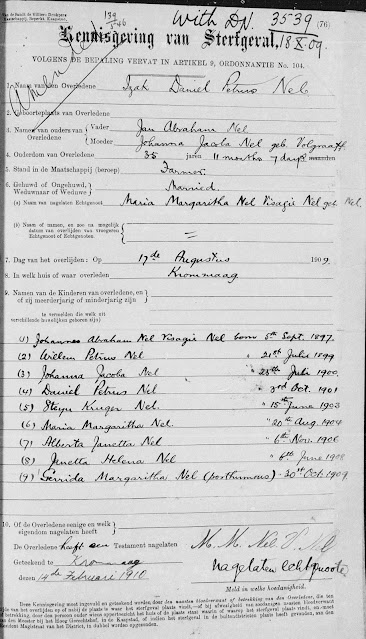 139
5/46
With DN. 3539 (76)
Kennisgering van Sterfgeval, 18/X/09.
VOLGENS DE BEPALING VERVAT IN ARTIKEL 9, ORDONNANTIE No. 104.
1. Naam van den Overledene Izak Daniel Petrus Nel
2. Geboorteplaats van Overledene
3. Namen van ouders van Overledene
Vader Jan Abraham Nel
Moeder Johanna Jacoba Nel geb. Volgraaff
4. Ouderdom van Overledene 35 jaren 11 months 7 days maanden
5. Stand in de Maatschappij (beroep) Farmer
6. Gehuwd of Ongehuwd, Weduwnaar of Weduwe Married
(a) Naam van nagelaten Echtgenoot Maria Margaritha Nel Visagie Nel geb. Nel
(b) Naam of namen, en zoo mogelijk datum van overlijden van vroegeren Echtgenoot of Echtgenooten
7. Dag van het overlijden: Op 17de Augustus 1909.
8. In welk huis of waar overleden Krommaag
9. Namen van de Kinderen van overledene, en of zij meerderjarig of minderjarig zijn
(1) Johannes Abraham Nel Visagie Nel born 5th Sept. 1897.
(2) Willem Petrus Nel " 21st Julie 1899
(3) Johanna Jacoba Nel " 28th Julij 1900.
(4) Daniel Petrus Nel " 3rd Oct. 1901
(5) Steyn Kruger Nel. " 15th June 1903
(6) Maria Margaritha Nel " 20th Aug. 1904
(7) Alberta Janetta Nel " 6th Nov. 1906
(8) Janetta Helena Nel " 6th June 1908
(9) Gerrida Margaritha Nel (posthumous) 30th Oct. 1909
10. Of de Overledene eenige en welk eigendom nagelaten heeft
De Overledene heeft een Testament nagelaten
M. M. Nel V. Nel
Geteekend te Krommaag
nagelaten Echtgenoote
deze 14de Februarie 1910
Meld in welke hoedanigheid.